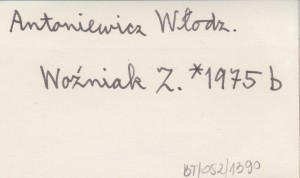 Antoniewicz Włodz.
Woźniak Z. *1975 b
BT/052/1390